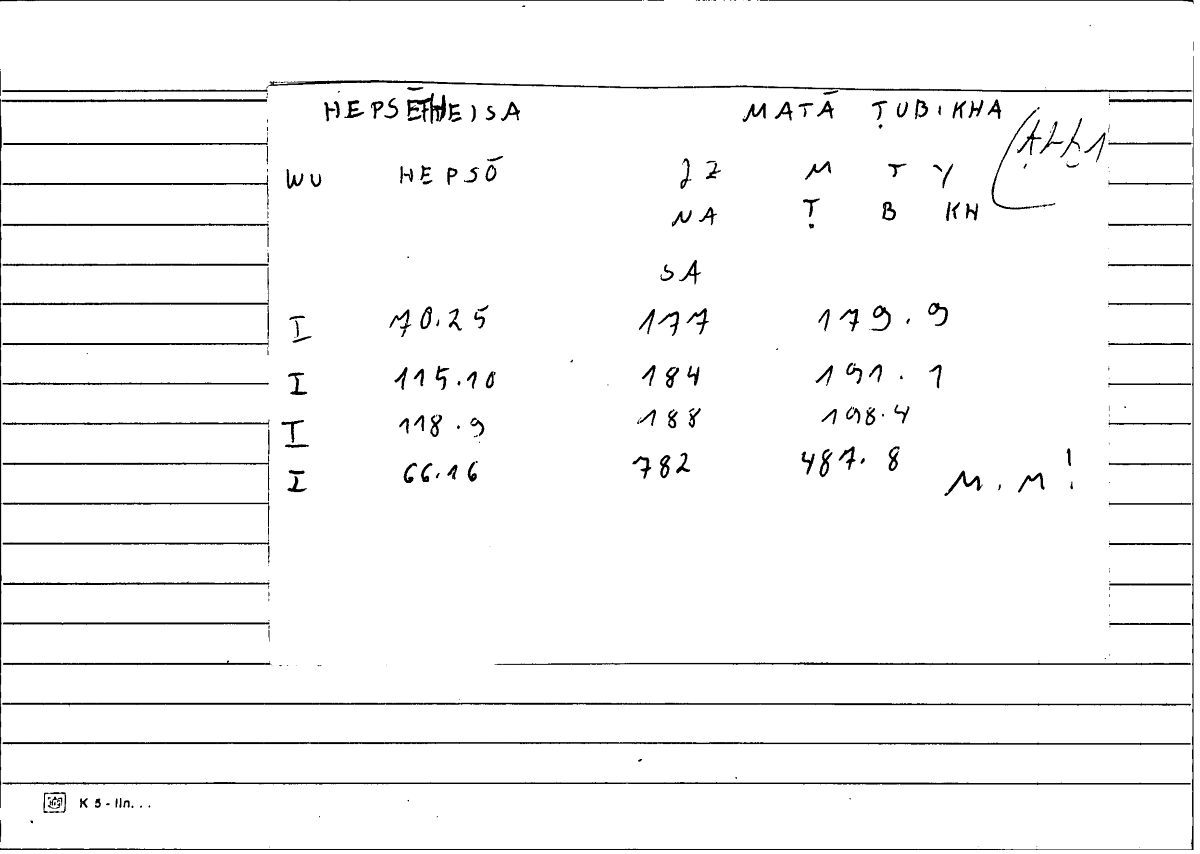 HEPSĒTHEISA MATĀ ṬUBIKHA
WU HEPSŌ JZ M T Y
NA Ṭ B KH
SA
I 70.25 177 179.9
I 115.10 184 191.1
I 118.9 188 198.4
I 66.16 782 487.8 M.M!
K 5 - lln...